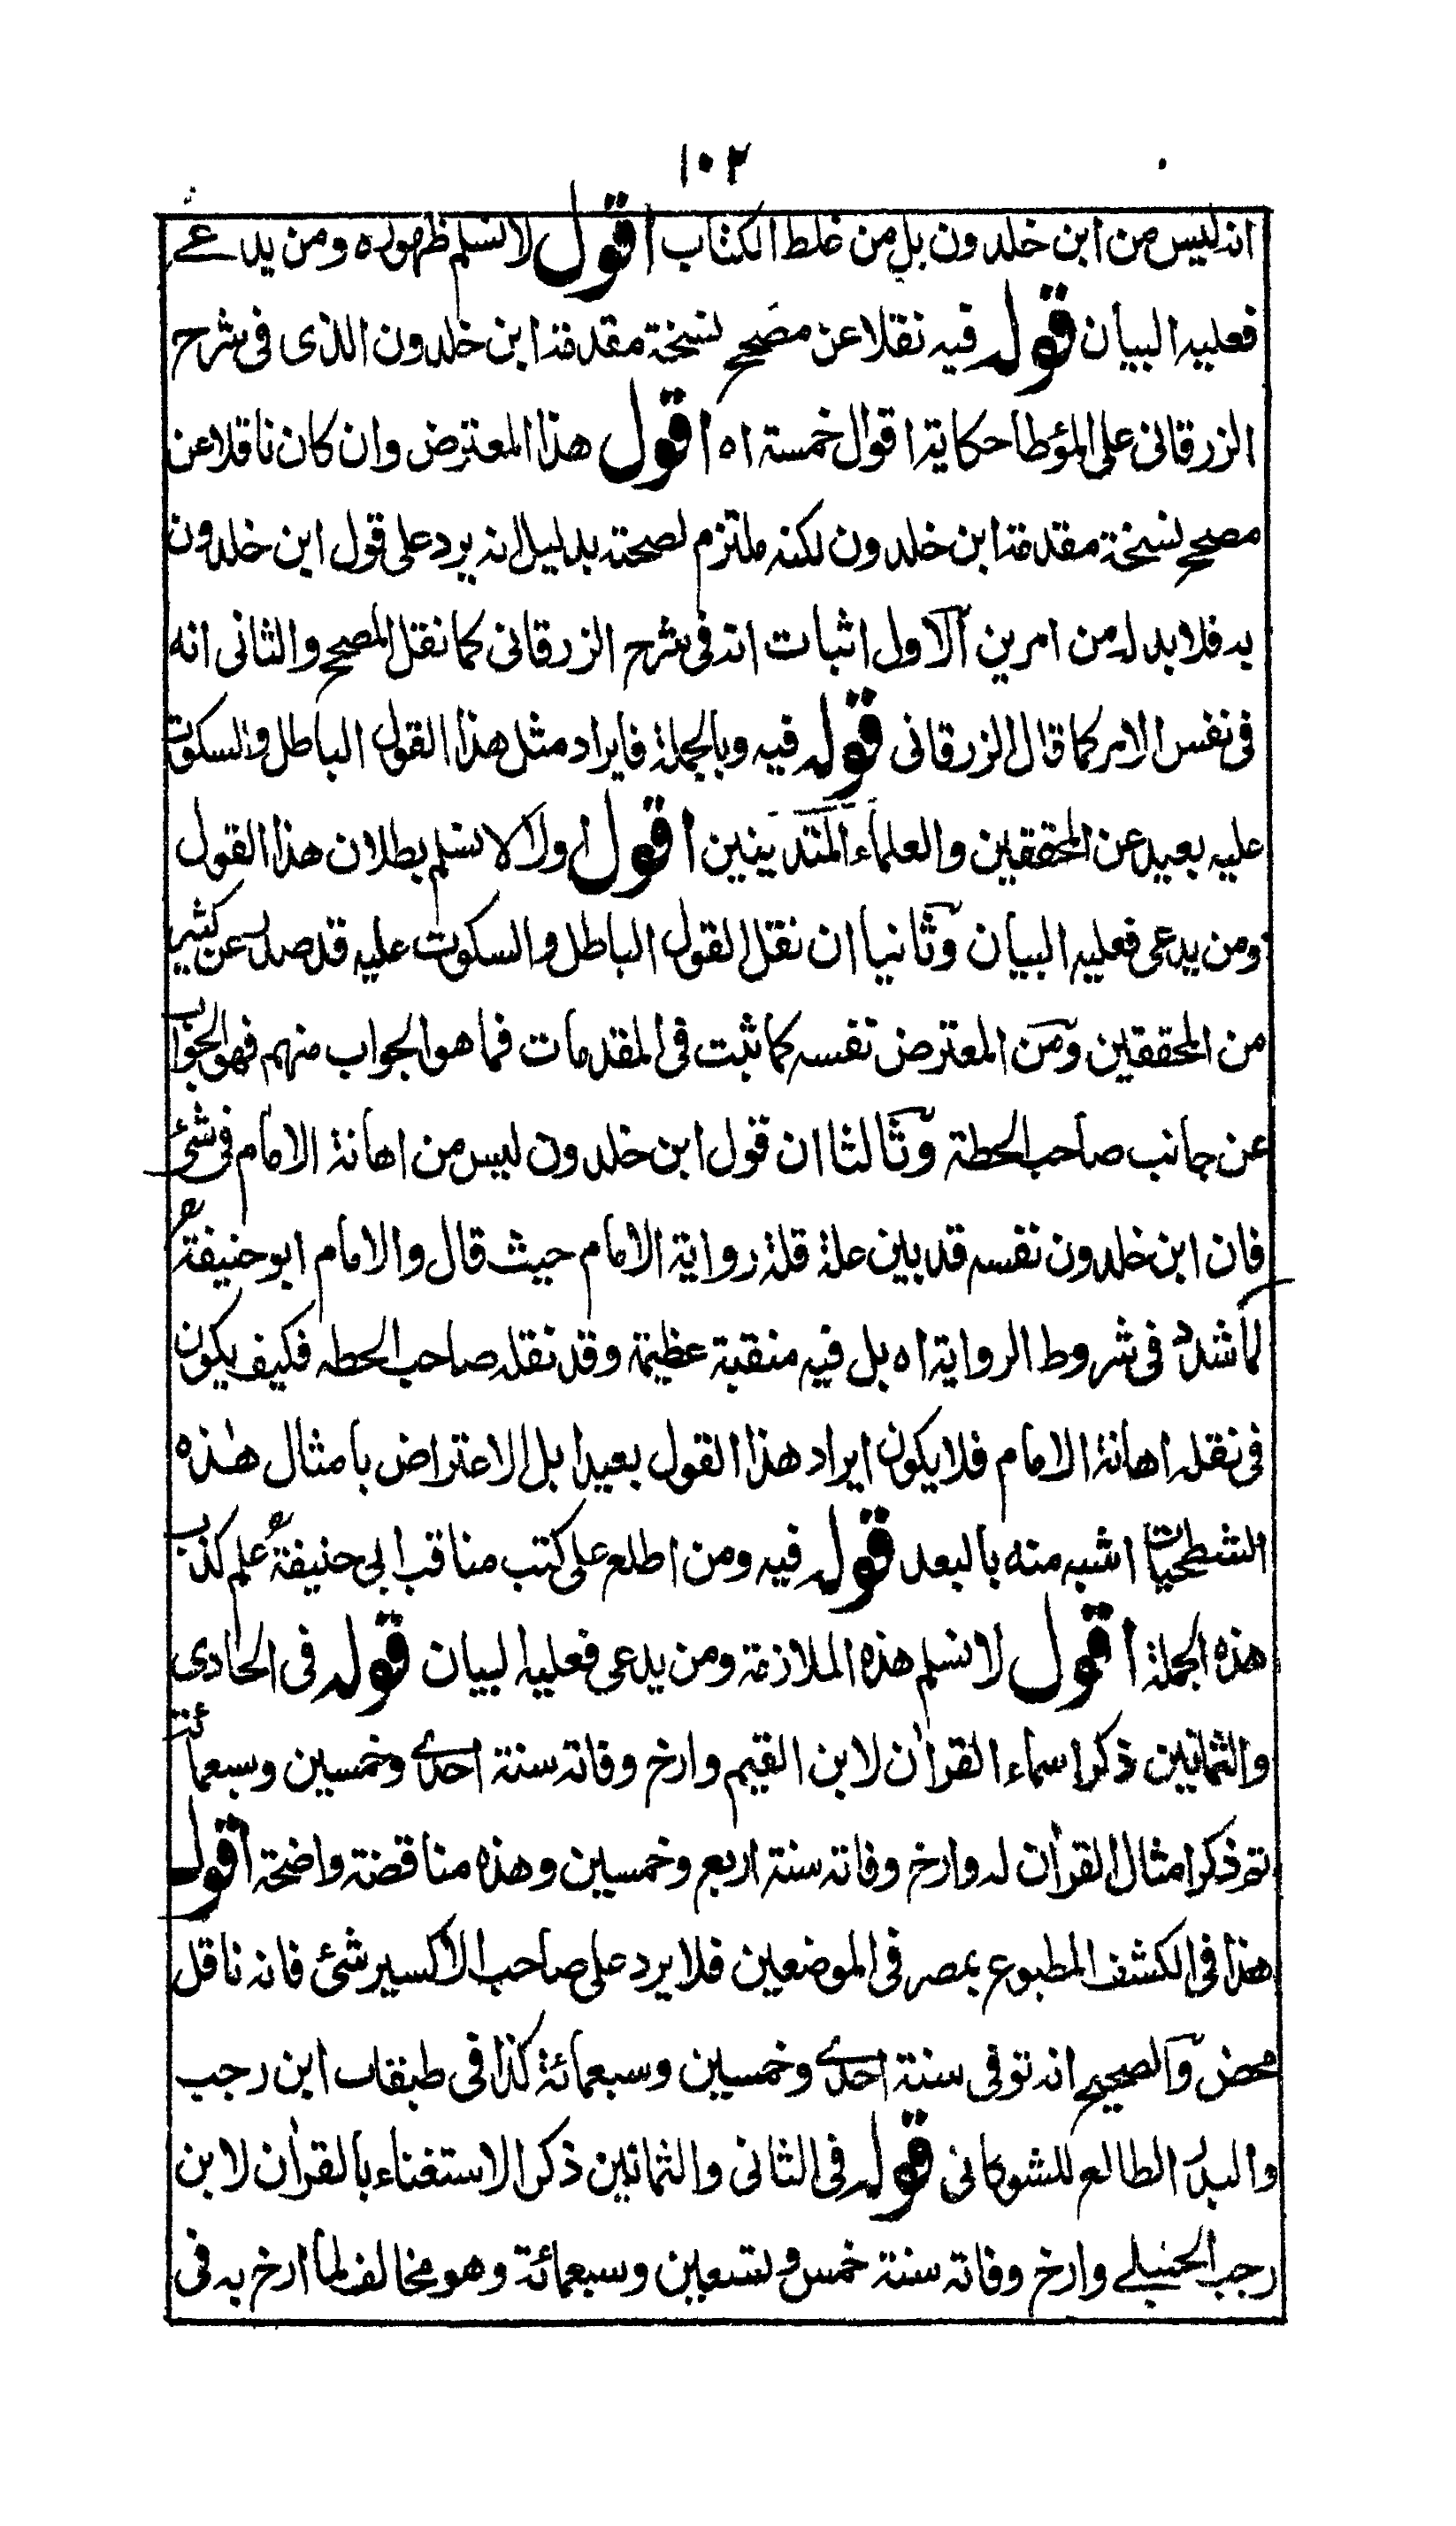 ١٠٢
انه ليس من ابن خلدون بل من غلط الكتاب اقول لا نسلم ظهوره ومن يدعے
فعليه البيان قوله فيه نقلا عن مصحح نسخة مقدمة ابن خلدون الذى فى شرح
الزرقانى على المؤطا حكاية اقوال خمسة اه اقول هذا المعترض وان كان ناقلا عن
مصحح نسخة مقدمة ابن خلدون لكنه ملتزم لصحته بدليل انه يرد على قول ابن خلدون
به فلا بد له من امرين الاول اثبات انه فى شرح الزرقانى كما نقل المصحح والثانى انه
فى نفس الامر كما قال الزرقانى قوله فيه وبالجملة فايراد مثل هذا القول الباطل والسكوت
عليه بعيد عن المحققين والعلماء المتدينين اقول اولا لا نسلم بطلان هذا القول
ومن يدعى فعليه البيان وثانيا ان نقل القول الباطل والسكوت عليه قد صدر عن كثير
من المحققين ومن المعترض نفسه كما ثبت فى المقدمات فما هو الجواب منهم فهو الجواب
عن جانب صاحب الحطة وثالثا ان قول ابن خلدون ليس من اهانة الامام فى شئ
فان ابن خلدون نفسه قد بين علة قلة رواية الامام حيث قال والامام ابو حنيفةؒ
لما شدد فى شروط الرواية اه بل فيه منقبة عظيمة وقد نقله صاحب الحطه فكيف يكون
فى نقله اهانة الامام فلا يكون ايراد هذا القول بعيدا بل الاعتراض بامثال هذه
الشطحيات اشبه منه بالبعد قوله فيه ومن اطلع على كتب مناقب ابى حنيفةؒ علم كذب
هذه الجملة اقول لا نسلم هذه الملازمة ومن يدعى فعليه البيان قوله فى الحادى
والثمانين ذكر اسماء القرأن لابن القيم وارخ وفاته سنة احدے وخمسين وسبعمائة
ثم ذكر امثال القرأن له وارخ وفاته سنة اربع وخمسين وهذه مناقضة واضحة اقول
هذا فى الكشف المطبوع بمصر فى الموضعين فلا يرد على صاحب الاكسير شئ فانه ناقل
محض والصحيح انه توفى سنة احدے وخمسين وسبعمائة كذا فى طبقات ابن رجب
والبدر الطالع للشوكانى قوله فى الثانى والثمانين ذكر الاستغناء بالقرأن لابن
رجب الحنبلے وارخ وفاته سنة خمس وتسعين وسبعمائة وهو مخالف لما ارخ به فى